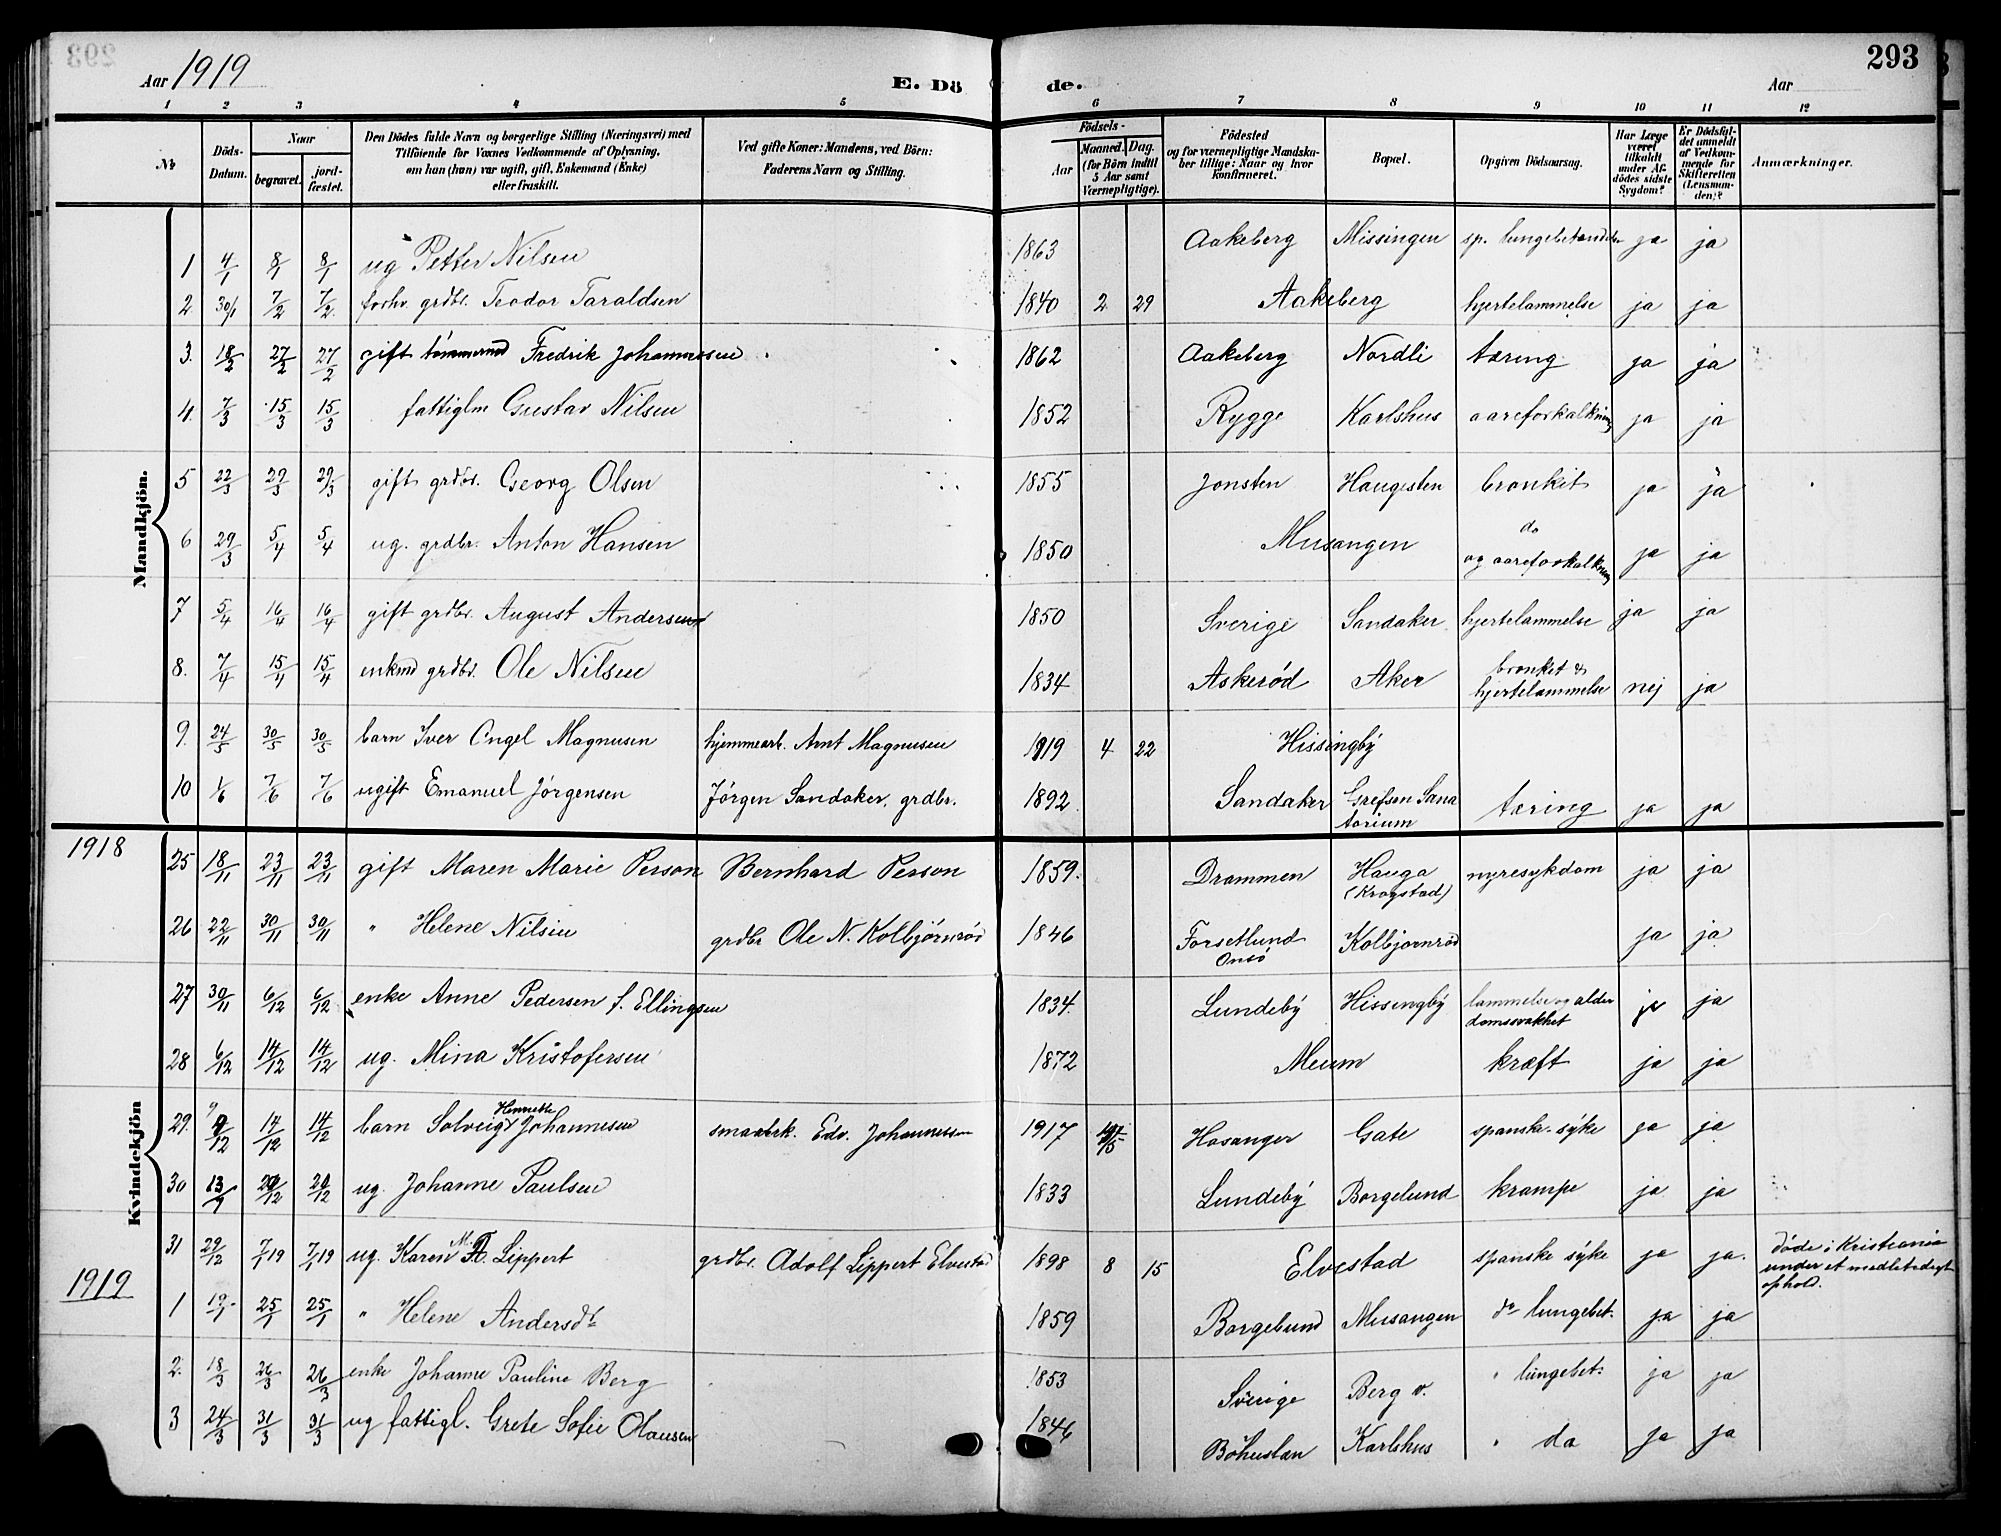 293
Aar 1919
E. Dö de.
Aar
1 2 3 4 5 6 7 8 9 10 11 12
№ Döds-Datum. Naar begravet. jord-fæstet. Den Dödes fulde Navn og borgerlige Stilling (Næringsvei) med Tilföiende for Voxnes Vedkommende af Oplysning, om han (hun) var ugift, gift, Enkemand (Enke) eller fraskilt. Ved gifte Koner: Mandens, ved Börn: Faderens Navn og Stilling. Födsels- Aar Maaned. Dag. (for Börn indtil 5 Aar samt Værnepligtige). Födested og for værnepligtige Mandskaber tillige: Naar og hvor konfirmeret. Bopæl. Opgiven Dödsaarsag. Har Læge været tilkaldt under Afdödes sidste Sygdom? Er Dödsfaldet anmeldt af Vedkommende for Skifteretten (Lensmanden)? Anmærkninger.
Mandkjön.
1 4/1 8/1 8/1 ug Petter Nilsen 1863 Aakeberg Missingen sp. lungebetændelse ja ja
2. 30/1 7/2 7/2 forhv. grdbr. Teodor Taraldsen 1840 2 29 Aakeberg hjertelammelse ja ja
3. 18/2 27/2 27/2 gift tömmermd Fredrik Johannessen 1862 Aakeberg Nordli tæring ja ja
4. 7/3 15/3 15/3 fattiglm Gustav Nilsen 1852 Rygge Karlshus aareforkalkning ja ja
5 22/3 29/3 29/3 gift grdbr. Georg Olsen 1855 Jonsten Haugesten bronkit ja ja
6 29/3 5/4 5/4 ug. grdbr. Anton Hansen 1850 Musangen do og aareforkalkning ja ja
7 5/4 16/4 16/4 gift grdbr. August Andersen 1850 Sverige Sandaker hjertelammelse ja ja
8. 7/4 15/4 15/4 enkmd grdbr. Ole Nilsen 1834 Askerød Aker bronket & hjertelammelse nej ja
9. 24/5 30/5 30/5 barn Iver Engel Magnusen hjemmearb. Arnt Magnusen 1919 4 22 Hissingby
10 1/6 7/6 7/6 ugift Emanuel Jørgensen Jørgen Sandaker, grdbr. 1892 Sandaker Grefsen Sanatorium tæring ja ja
1918
Kvindekjön
25 18/11 23/11 23/11 gift Maren Marie Person Bernhard Person 1859. Drammen Hauga (Krogstad) nyresykdom ja ja
26 22/11 30/11 30/11 " Helene Nilsen grdbr Ole N. Kolbjørnrød 1846 Forsetlund Onsö Kolbjornrød ja ja
27 30/11 6/12 6/12 enke Anne Pedersen f. Ellingsen 1834. Lundeby Hissingby lammelse og alderdomssvakhet ja ja
28 6/12 14/12 14/12 ug. Mina Kristofersen 1872 Meum kræft ja ja
29. 9/12 14/12 14/12 barn Solveig Henriette Johannesen smaabrk. Edv. Johannessen 1917 Hasanger Gate spanske-syke ja ja
30 13/9 20/12 20/12 ug. Johanne Paulsen 1833 Lundeby Borgelund krampe ja ja
31 29/12 7/1 19 7/1 19 ug. Karen M. A. Lippert grdbr. Adolf Lippert Elvestad 1898 8 15 Elvestad spanske syke ja ja. døde i Kristiania under et midlertidigt ophold.
1919
1 19/1 25/1 25/1 " Helene Andersdt 1859 Borgelund Musangen do lungebet. ja ja
2. 18/3 26/3 26/3 enke Johanne Pauline Berg 1853 Sverige Berg v. " lungebet. ja ja
3 24/3 31/3 31/3 ug fattigl. Grete Sofie Olausen 1846 Bohuslan Karlshus " do ja ja